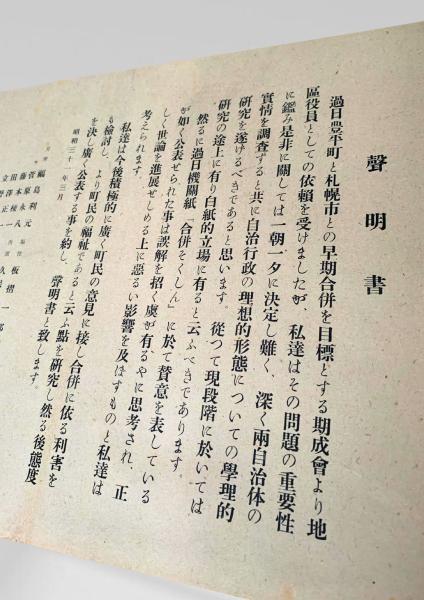 聲明書
過日豊平町と札幌市との早期合併を目標とする期成會より地
區役員としての依賴を受けましたが、私達はその問題の重要性
に鑑み是非に關しては一朝一夕に決定し難く、深く兩自治体の
實情を調査すると共に自治行政の理想的形態についての學理的
研究を遂げるべきであると思います。從つて現段階に於いては
研究の途上に有り白紙的立場に有ると云ふべきであります。
然るに過日機關紙「合併そくしん」に於て賛意を表している
が如く公表せられた事は誤解を招く虞が有るやに思考され、正
しく世論を進展せしめる上に惡るい影響を及ぼすものと私達は
考えられます。
私達は今後積極的に廣く町民の意見に接し合併に依る利害を
も檢討し、より町民の福祉であると云ふ點を研究し然る後態度
を決し廣く公表する事を約し、聲明書と致します。
昭和三十一年三月